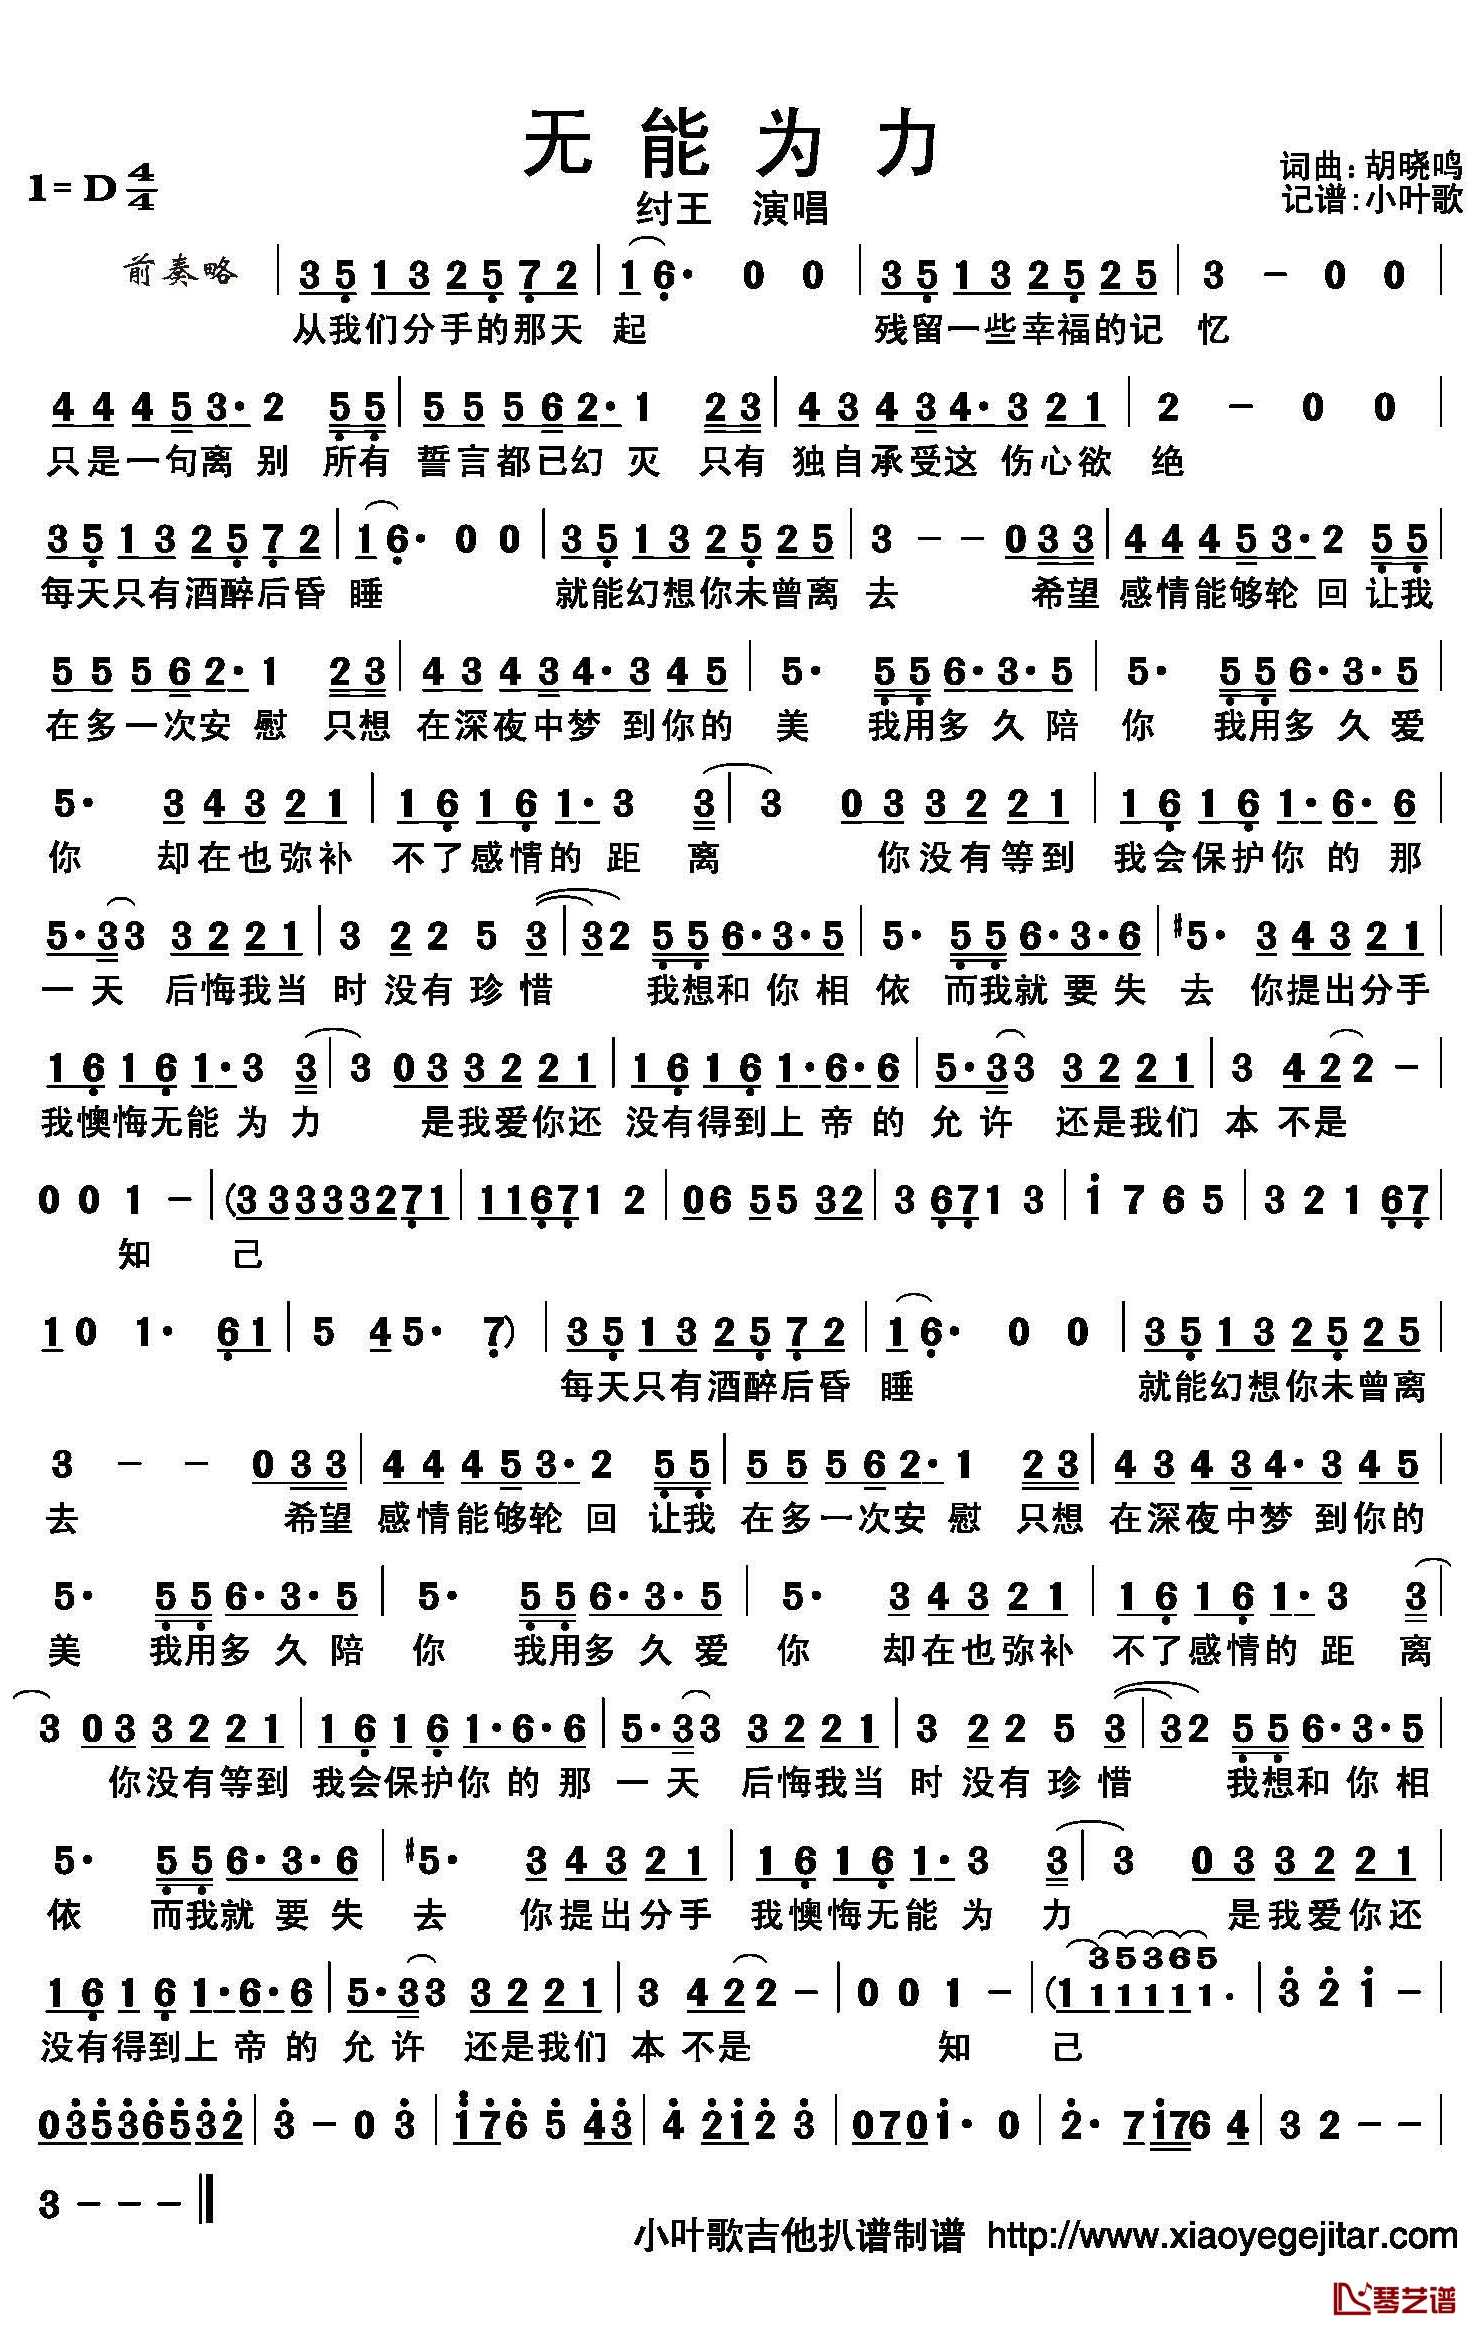 无能为力
1=D 4/4
纣王 演唱
词曲:胡晓鸣
记谱:小叶歌
前奏略 | 3 5 1 3 2 5 7 2 | 1 6· 0 0 | 3 5 1 3 2 5 2 5 | 3 – 0 0 |
从我们分手的那天 起 残留一些幸福的记 忆
4 4 4 5 3· 2 5 5 | 5 5 5 6 2· 1 2 3 | 4 3 4 3 4· 3 2 1 | 2 – 0 0 |
只是一句离 别 所有 誓言都已幻 灭 只有 独自承受这 伤心欲 绝
3 5 1 3 2 5 7 2 | 1 6· 0 0 | 3 5 1 3 2 5 2 5 | 3 – – 0 3 3 | 4 4 4 5 3· 2 5 5 |
每天只有酒醉后昏 睡 就能幻想你未曾离 去 希望 感情能够轮 回 让我
5 5 5 6 2· 1 2 3 | 4 3 4 3 4· 3 4 5 | 5· 5 5 6· 3· 5 | 5· 5 5 6· 3· 5 |
在多一次安 慰 只想 在深夜中梦 到你的 美 我用多 久陪 你 我用多 久爱
5· 3 4 3 2 1 | 1 6 1 6 1· 3 3 | 3 0 3 3 2 2 1 | 1 6 1 6 1· 6· 6 |
你 却在也弥补 不了感情的 距 离 你没有等到 我会保护你 的 那
5· 3 3 3 2 2 1 | 3 2 2 5 3 | 3 2 5 5 6· 3· 5 | 5· 5 5 6· 3· 6 | #5· 3 4 3 2 1 |
一 天 后悔我当 时 没有 珍 惜 我想和 你 相 依 而我就 要 失 去 你提出分手
1 6 1 6 1· 3 3 | 3 0 3 3 2 2 1 | 1 6 1 6 1· 6· 6 | 5· 3 3 3 2 2 1 | 3 4 2 2 – |
我懊悔无能 为 力 是我爱你还 没有得到上 帝 的 允 许 还是我们 本 不 是
0 0 1 – | (3 3 3 3 3 2 7 1 | 1 1 6 7 1 2 | 0 6 5 5 3 2 | 3 6 7 1 3 | 1 7 6 5 | 3 2 1 6 7 |
知 己
1 0 1· 6 1 | 5 4 5· 7) | 3 5 1 3 2 5 7 2 | 1 6· 0 0 | 3 5 1 3 2 5 2 5 |
每天只有酒醉后昏 睡 就能幻想你未曾离
3 – – 0 3 3 | 4 4 4 5 3· 2 5 5 | 5 5 5 6 2· 1 2 3 | 4 3 4 3 4· 3 4 5 |
去 希望 感情能够轮 回 让我 在多一次安 慰 只想 在深夜中梦 到你的
5· 5 5 6· 3· 5 | 5· 5 5 6· 3· 5 | 5· 3 4 3 2 1 | 1 6 1 6 1· 3 3 |
美 我用多 久陪 你 我用多 久爱 你 却在也弥补 不了感情的 距 离
3 0 3 3 2 2 1 | 1 6 1 6 1· 6· 6 | 5· 3 3 3 2 2 1 | 3 2 2 5 3 | 3 2 5 5 6· 3· 5 |
你没有等到 我会保护你 的 那 一 天 后悔我当 时 没有 珍 惜 我想和 你 相
5· 5 5 6· 3· 6 | #5· 3 4 3 2 1 | 1 6 1 6 1· 3 3 | 3 0 3 3 2 2 1 |
依 而我就 要 失 去 你提出分手 我懊悔无能 为 力 是我爱你还
1 6 1 6 1· 6· 6 | 5· 3 3 3 2 2 1 | 3 4 2 2 – | 0 0 1 – | (1 3 5 3 6 5 1 1 1 1 1· | 3 2 1 – |
没有得到上 帝 的 允 许 还是我们 本 不 是 知 己
0 3 5 3 6 5 3 2 | 3 – 0 3 | 1 7 6 5 4 3 | 4 2 1 2 3 | 0 7 0 1· 0 | 2· 7 1 7 6 4 | 3 2 – – |
3 – – – ‖
小叶歌吉他扒谱制谱 http://www.xiaoyegejitar.com
琴艺谱